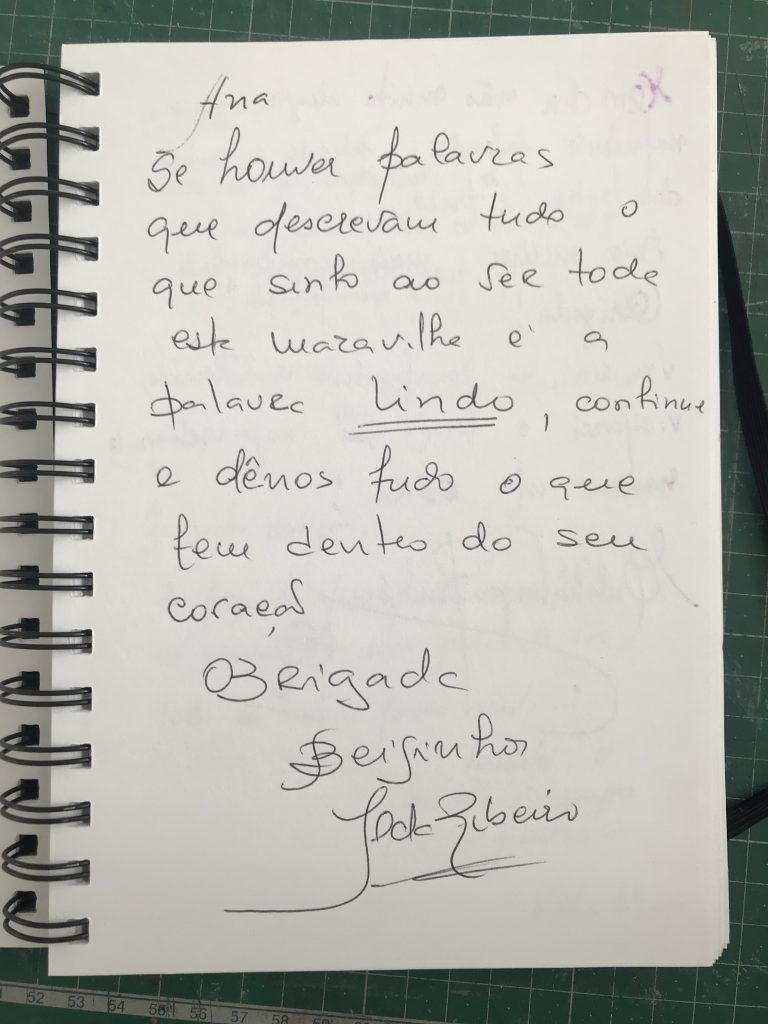 Ana
Se houver palavras
que descrevam tudo o
que sinto ao ser toda
esta maravilha é a
palavra lindo, continue
e dênos tudo o que
tem dentro do seu
coração
Obrigada
Beijinhos
Ribeiro
52 53 54 55 56 57 58 59